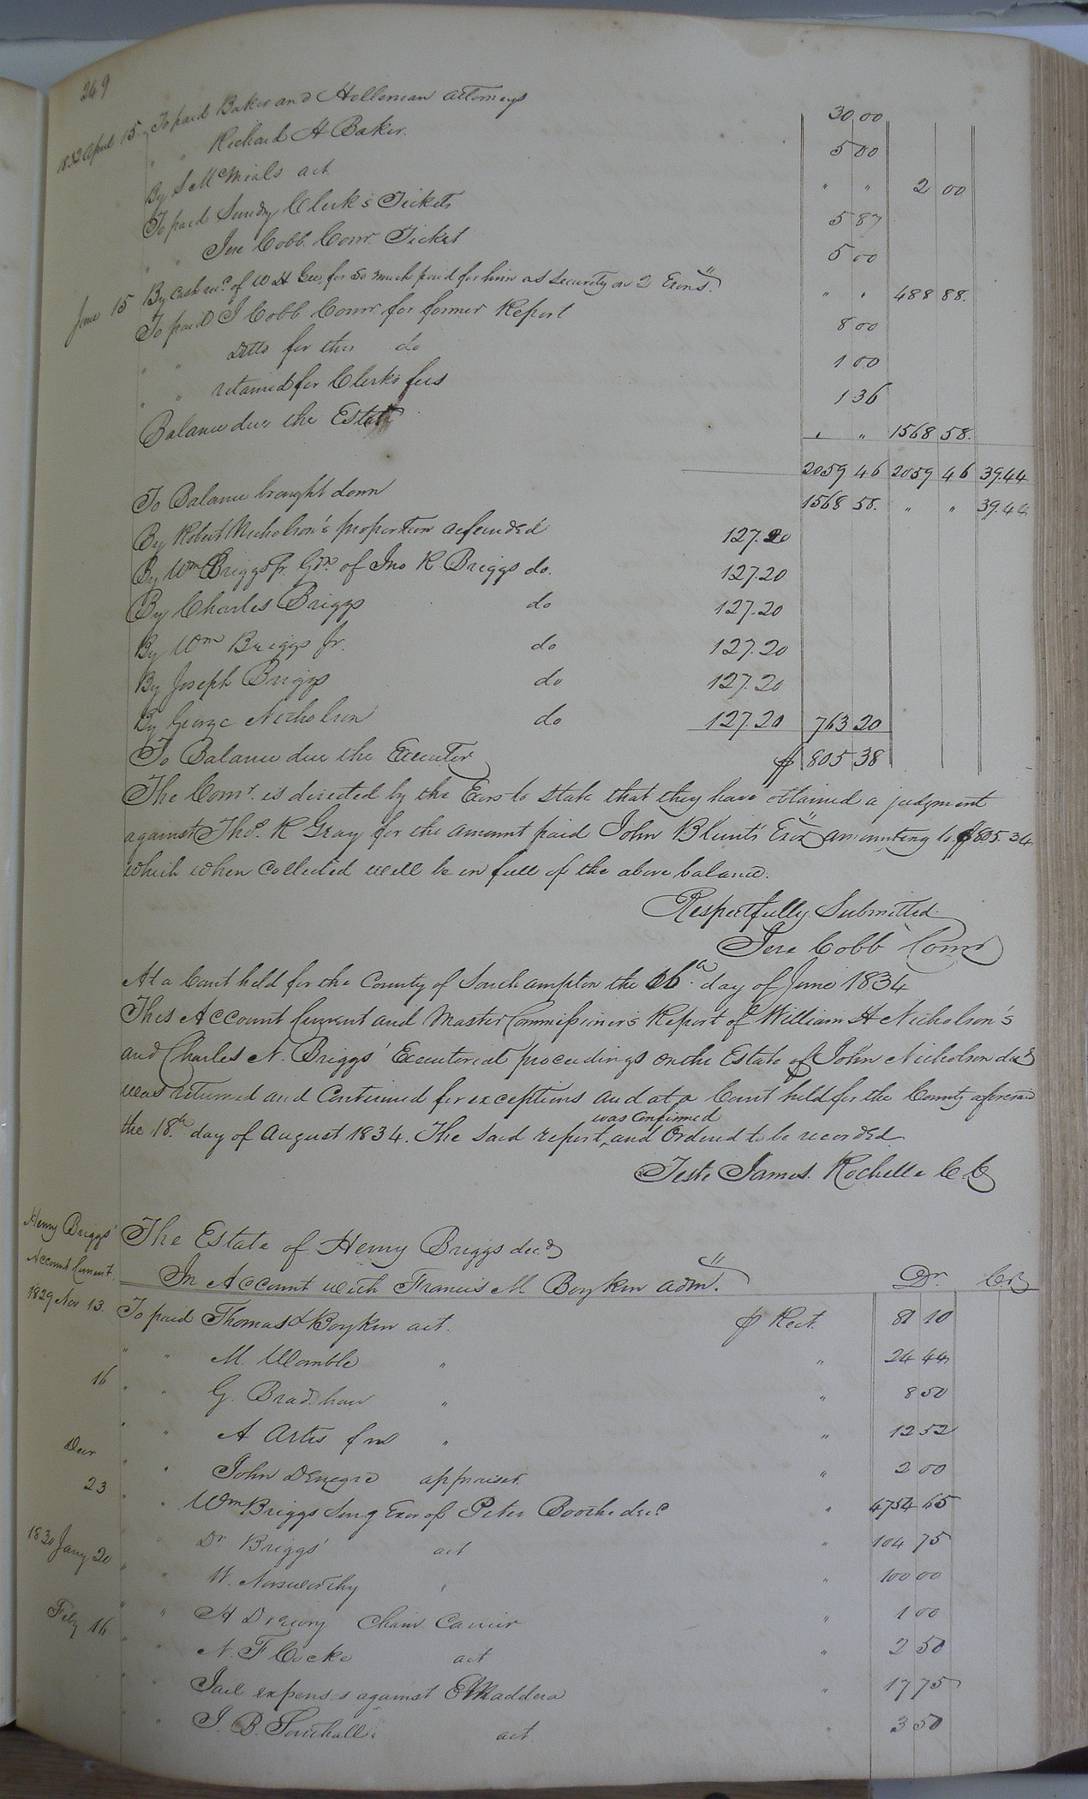 249
1832 April 15 To paid Baker and Holleman attorneys 30 00
" " Richard H Baker. 5 00
By S McNeals act " " 2 00
To paid Sundry Clerk's Tickets 5 87
" " Jere Cobb Comr. Ticket 5 00
June 15 By Cash recd. of W H Geo for so much paid for him as security on 2 Exons. " " 488 88.
To paid J Cobb Comr for former Report 8 00
" " ditto for this do 1 00
" " retained for Clerk's fees 1 36
Balance due the Estate " " 1568 58.
2059 46 2059 46 39.44
To Balance brought down 1568 58. " " 39.44
By Robert Nicholson's proportion refunded 127.20
By Wm Briggs Jr. Gdn. of Jno R. Briggs do. 127.20
By Charles Briggs do 127.20
By Wm Briggs Jr. do 127.20
By Joseph Briggs do 127.20
By George Nicholson do 127.20 763 20
To Balance due the Executor $ 805 38
The Comr. is directed by the Exors to state that they have obtained a judgment
against Thos. R Gray for the amount paid John Blunt's Exor amounting to $805.34
which when collected will be in full of the above balance.
Respectfully Submitted
Jere Cobb Comr
At a Court held for the County of Southampton the 16th. day of June 1834
This Account Current and Master Commissioner's Report of William H Nicholson's
and Charles N. Briggs' Executorial proceedings on the Estate of John Nicholson decd
was returned and Continued for exceptions and at a Court held for the County aforesaid
the 18th. day of August 1834. The said report was Confirmed and Ordered to be recorded
Teste James Rochelle C C
Henry Briggs'
Account Current.
The Estate of Henry Briggs decd
In Account with Francis M Boykin admr. Dr. Cr
1829 Nov 13. To paid Thomas Boykin act. $ Rect. 81 10
" " M. Womble " " 24 44
16 " " G. Bradshaw " " 8 50
" " A Artis fn " " 12 52
Decr " " John Denegre appraiser " 2 00
23 " " Wm Briggs Exor of Peter Booth decd " 4754 65
" Dr Briggs' act " 104 75
1830 Jany 20 " " W. Norsworthy " " 100 00
" " H Drewry Chain Carrier " 1 00
Feby 16 " " N. F Cocke act " 2 50
" " Jail expenses against E Maddera " 17 75
" " J. B. Southall's act " 3 50